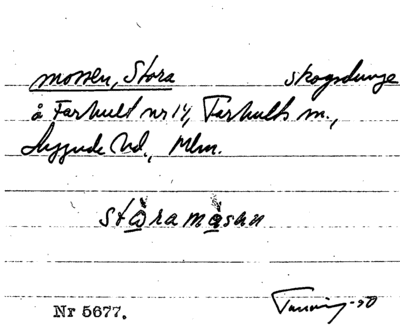 mossen, Stora skogsdunge
å Farhult nr 14, Farhults sn.,
Luggude hd., Mlm.
ståramåsen
Nr 5677.